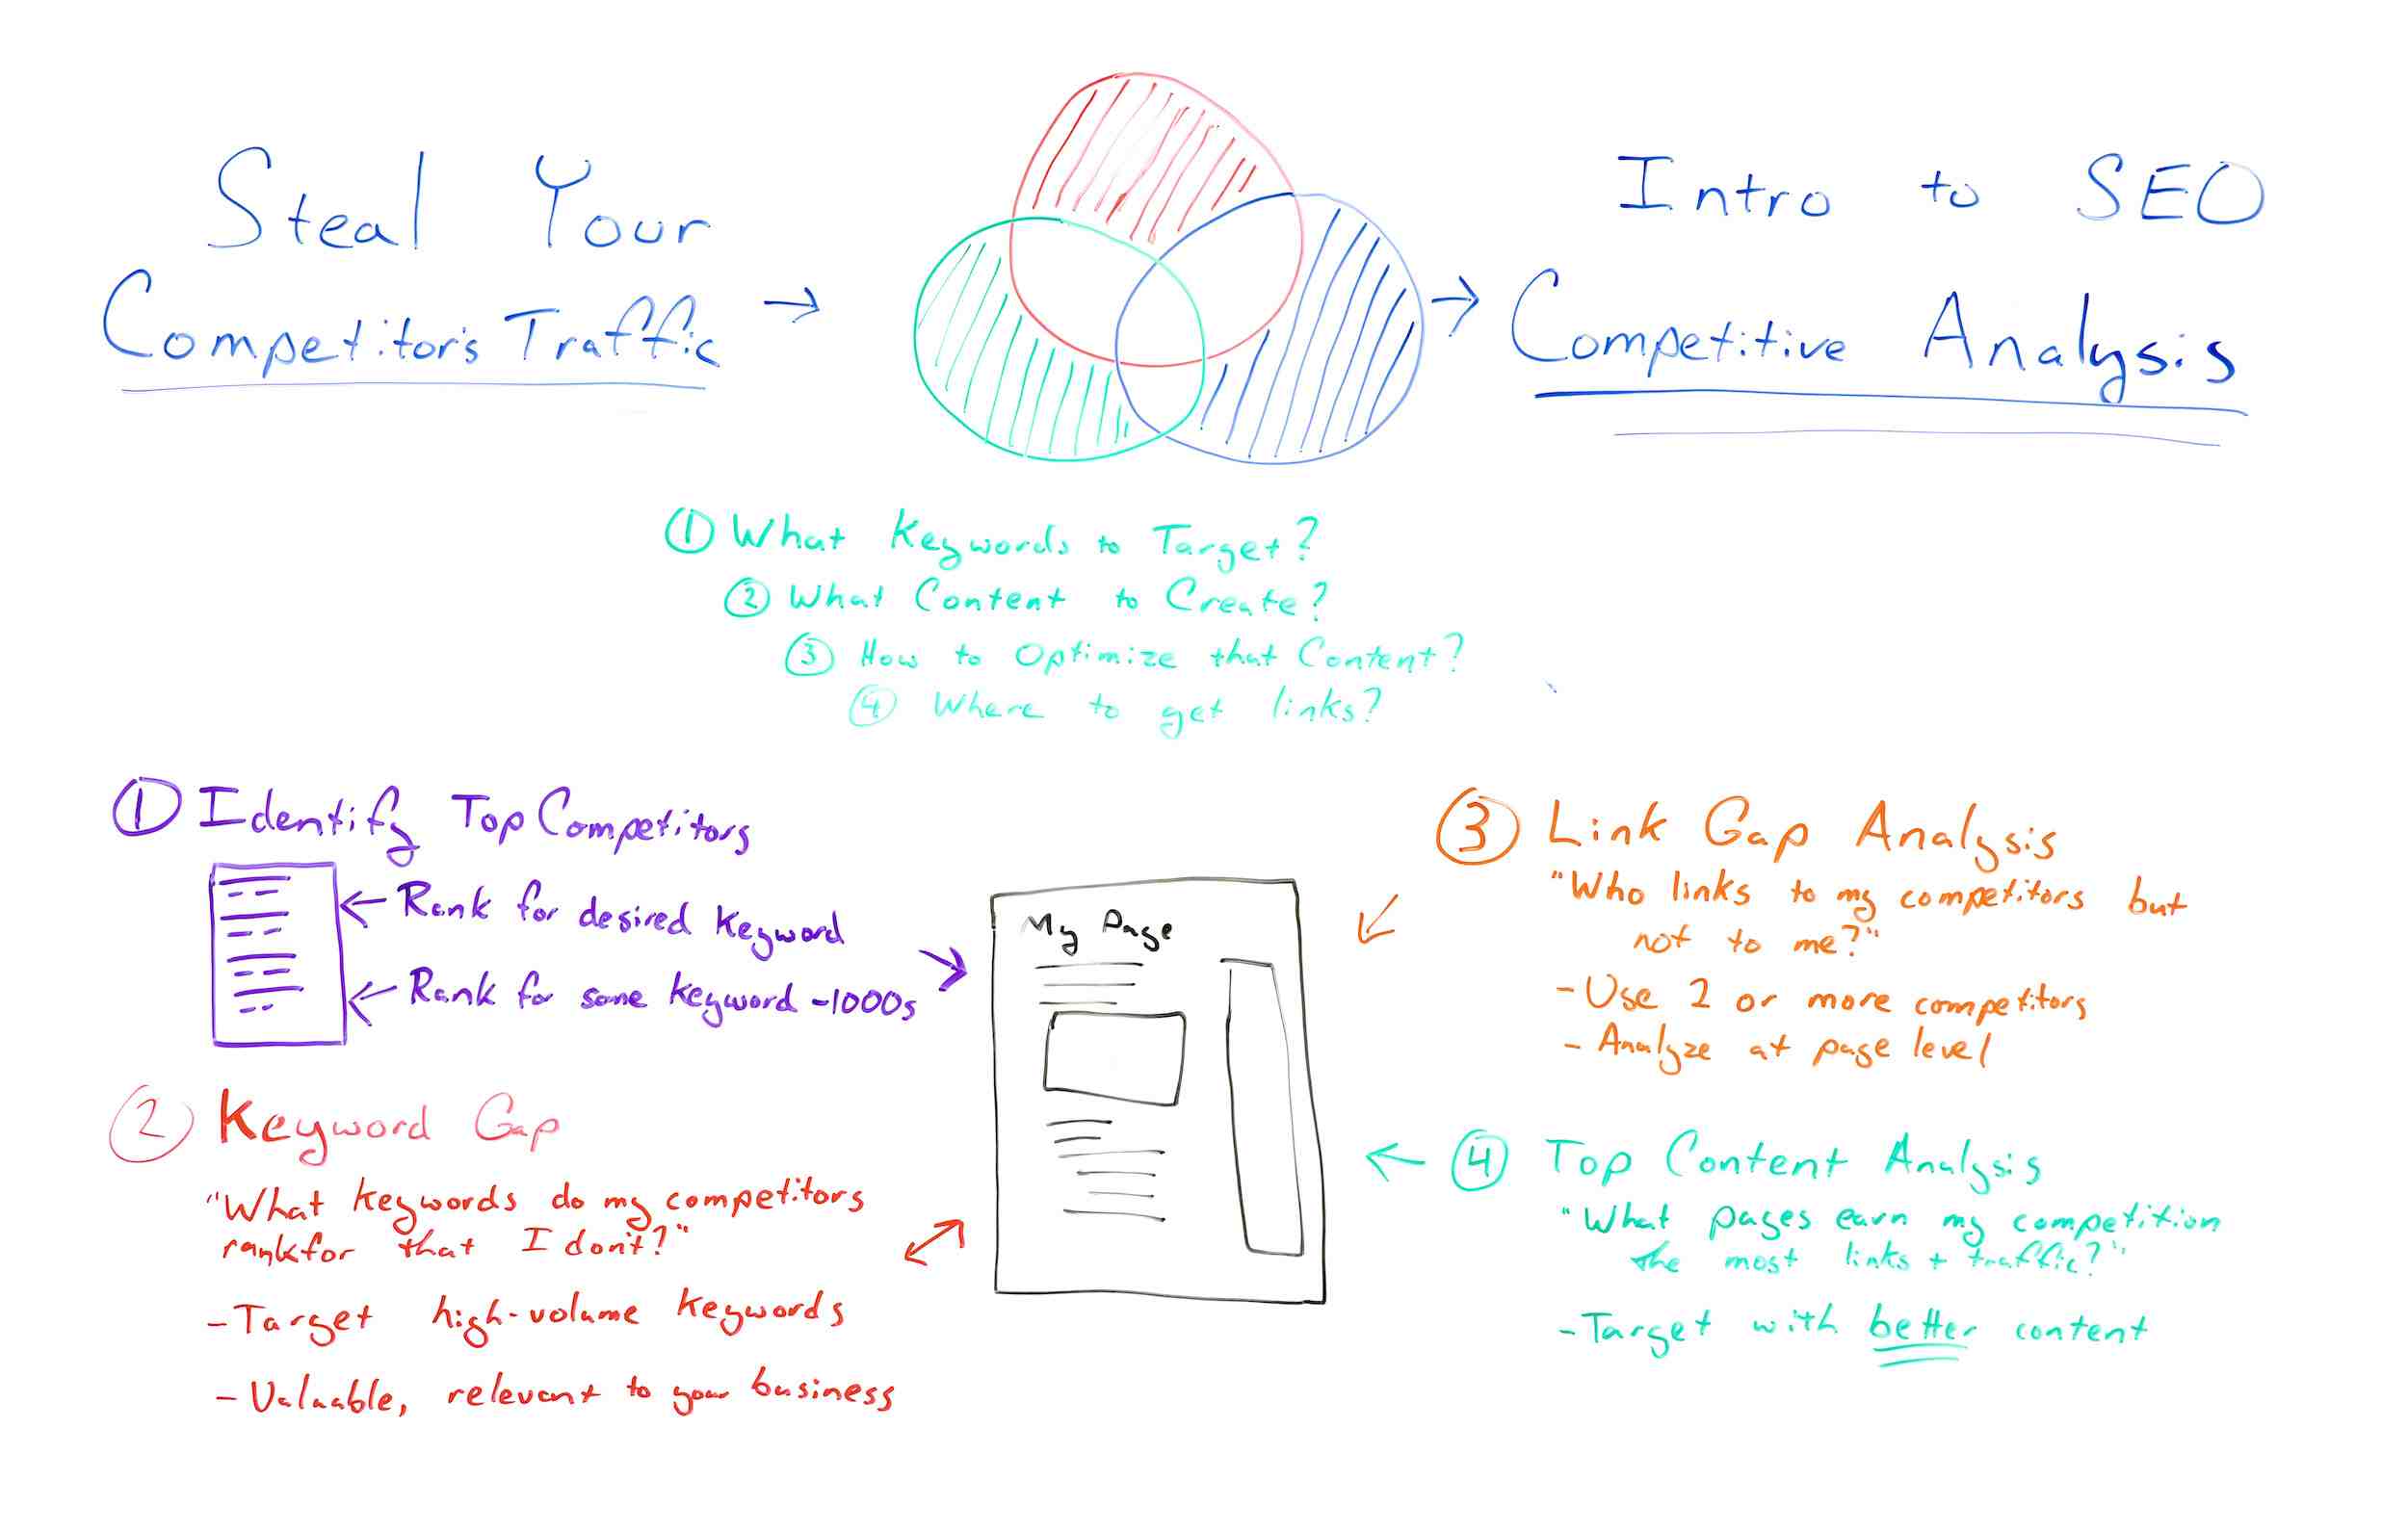 Steal Your
Competitor's Traffic
Intro to SEO
Competitive Analysis
① What Keywords to Target?
② What Content to Create?
③ How to Optimize that Content?
④ Where to get links?
① Identify Top Competitors
Rank for desired Keyword
Rank for same Keyword -1000s
② Keyword Gap
"What Keywords do my competitors
rank for that I don't?"
- Target high-volume Keywords
- Valuable, relevant to your business
My Page
③ Link Gap Analysis
"Who links to my competitors but
not to me?"
- Use 2 or more competitors
- Analyze at page level
④ Top Content Analysis
"What pages earn my competition
the most links + traffic?"
- Target with better content